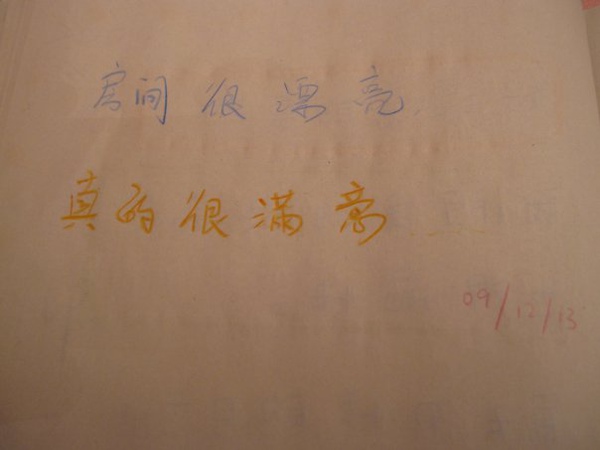 房间很漂亮
真的很滿意
09/12/13